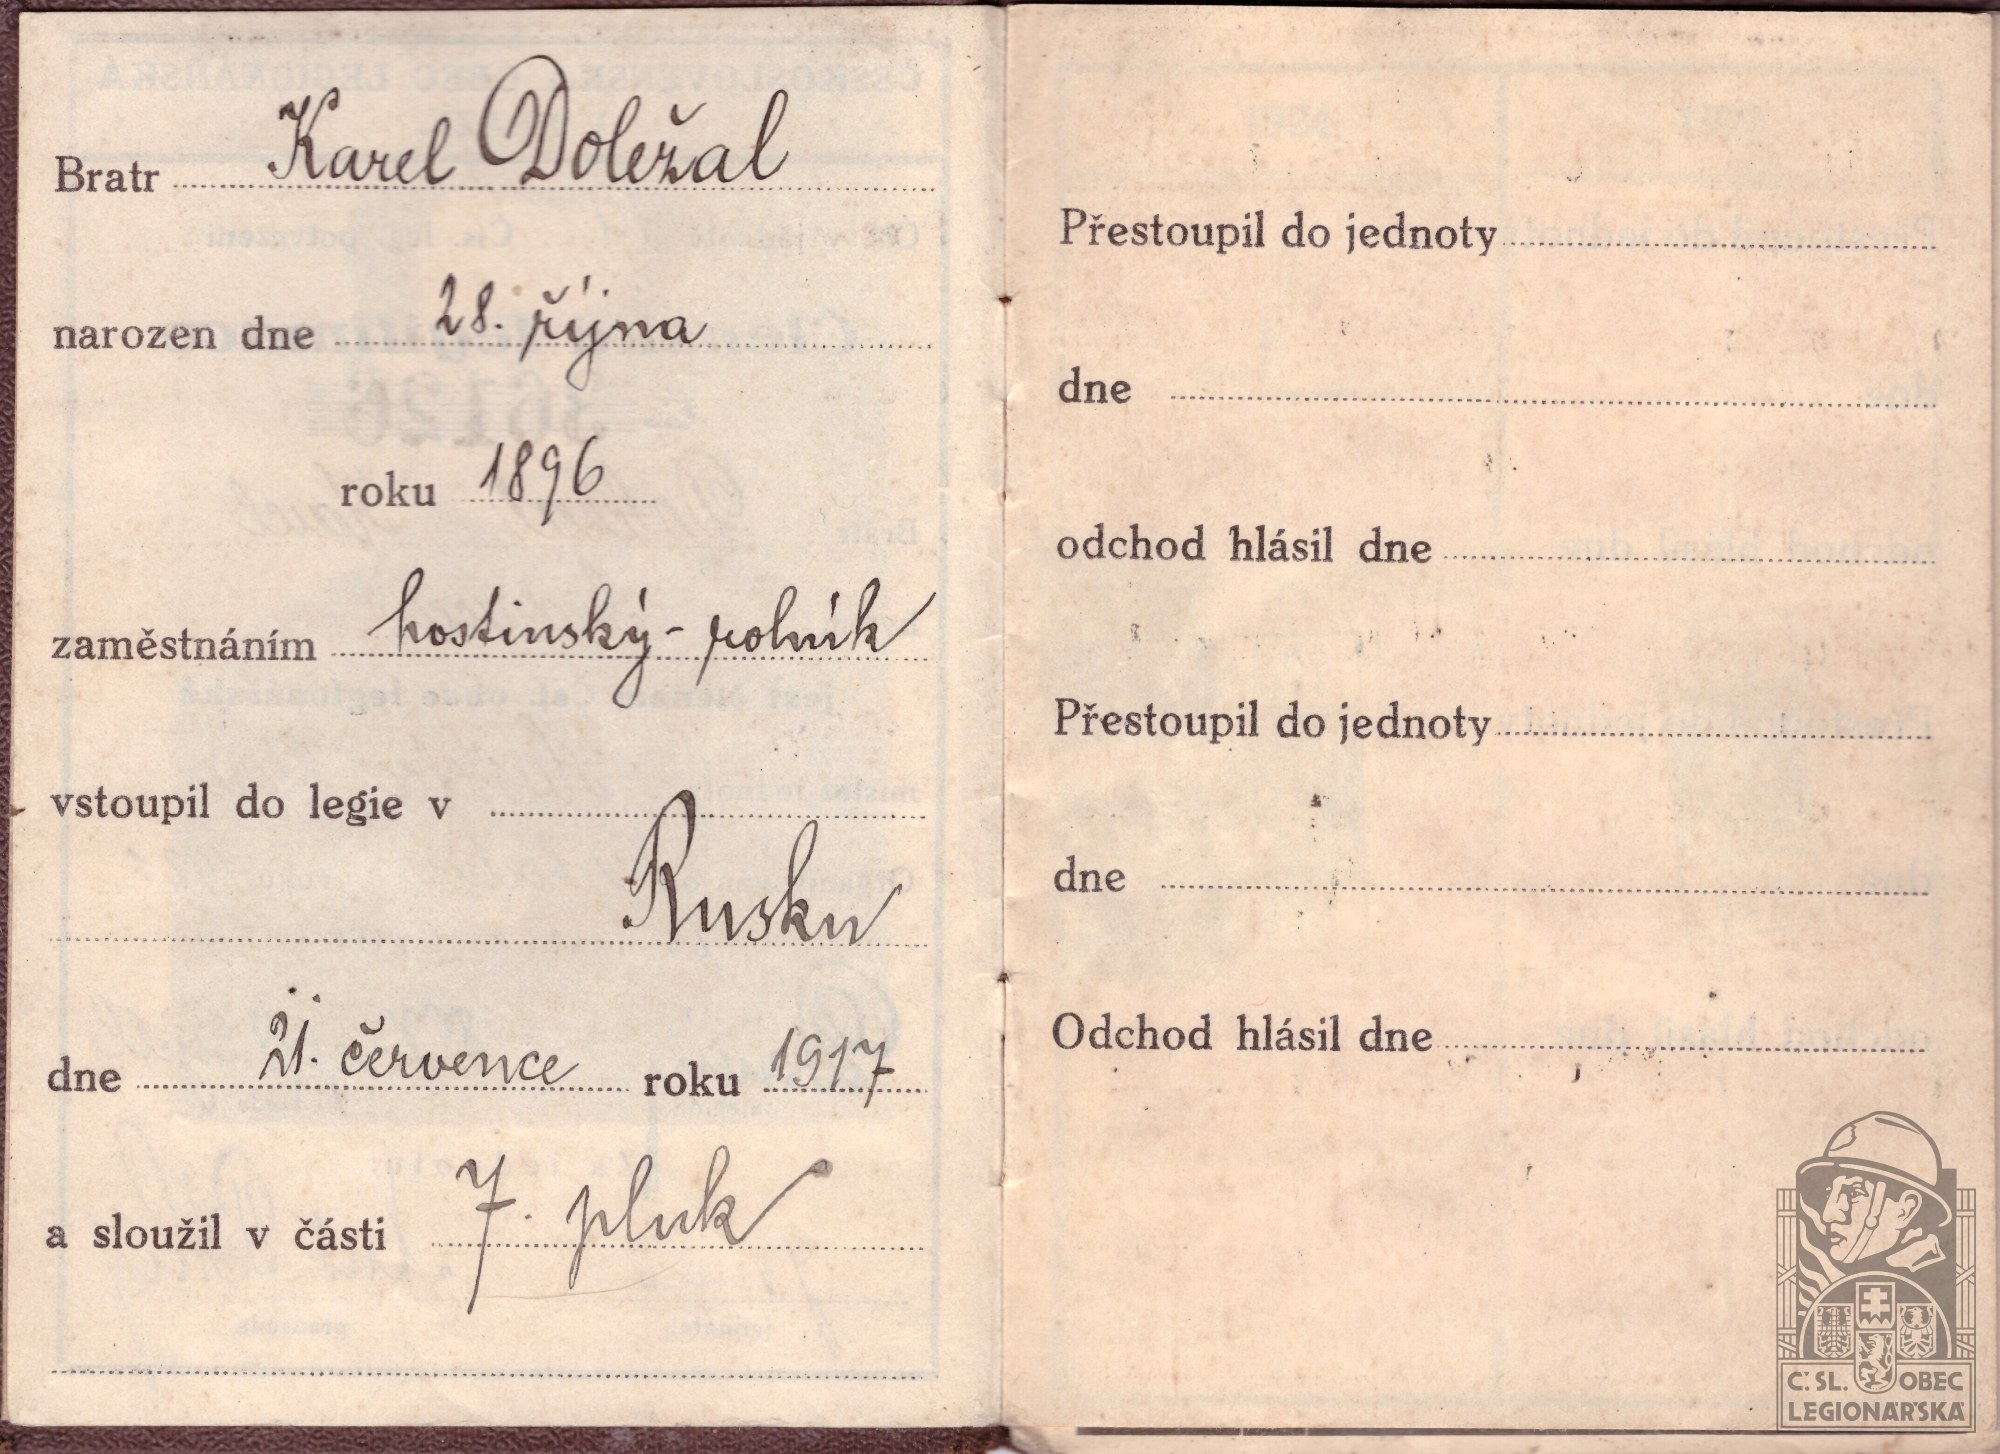 Bratr Karel Doležal
narozen dne 28. října
roku 1896
zaměstnáním hostinský - rolník
vstoupil do legie v
Rusku
dne 21. července roku 1917
a sloužil v části 7. pluk
Přestoupil do jednoty
dne
odchod hlásil dne
Přestoupil do jednoty
dne
Odchod hlásil dne
Č. SL. OBEC
LEGIONÁŘSKÁ